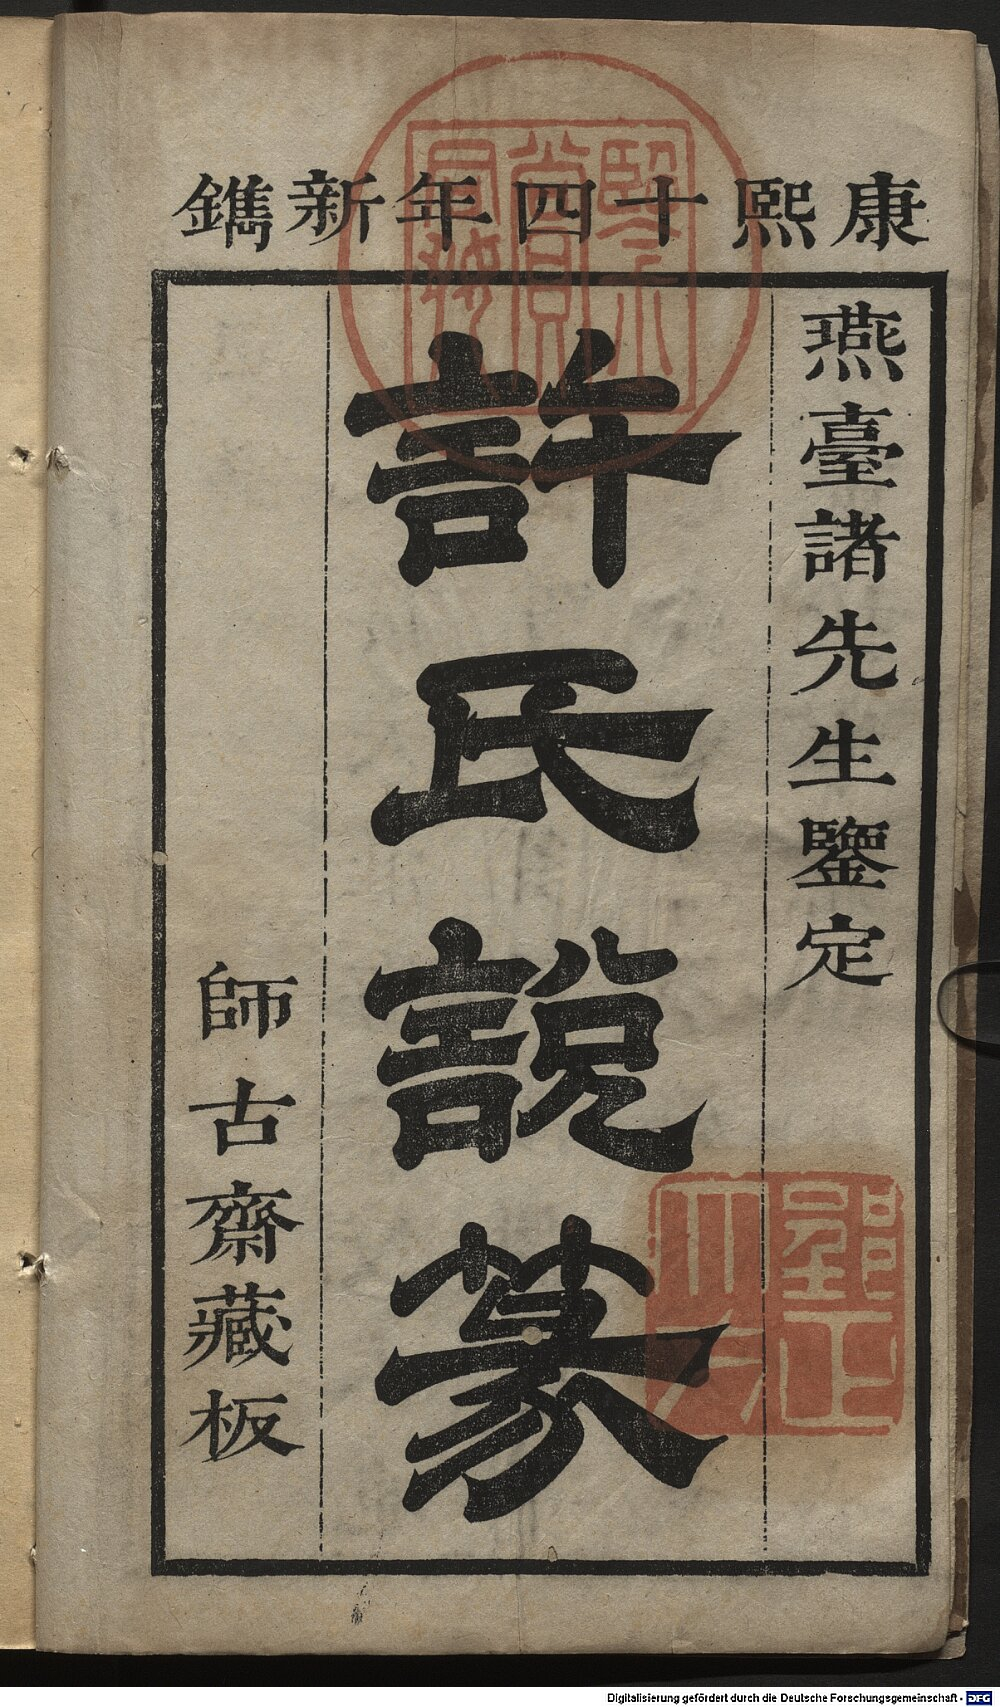 康熙十四年新鐫
燕臺諸先生鑒定
許氏說篆
師古齋藏板
Digitalisierung gefördert durch die Deutsche Forschungsgemeinschaft - DFG